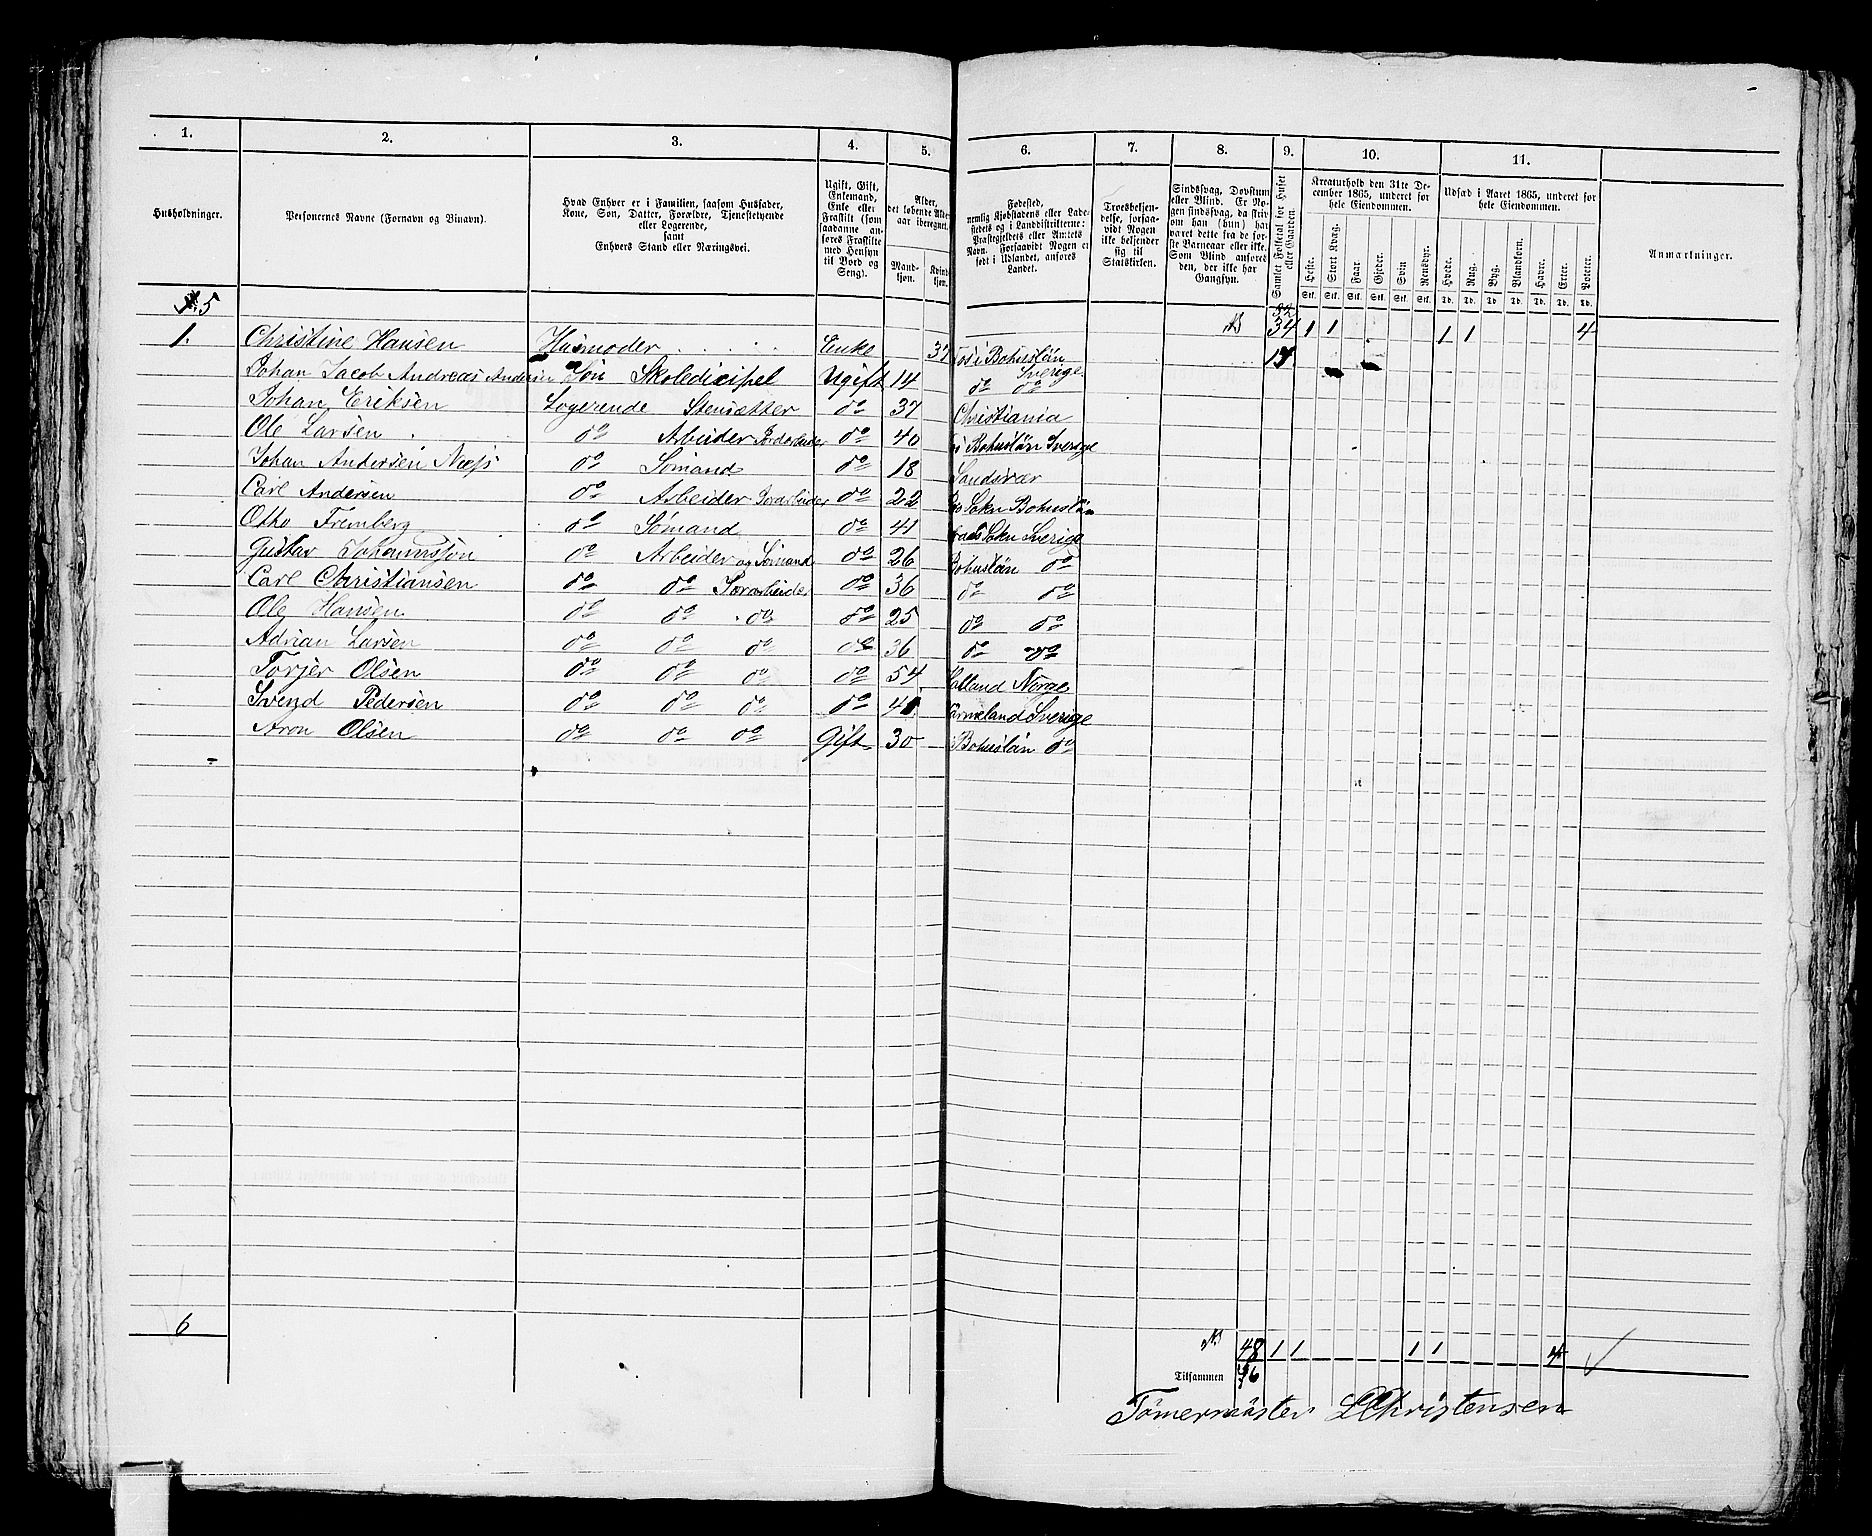 1. 2. 3. 4. 5. 6. 7. 8. 9. 10. 11.
Husholdninger.
Personernes Navne (Fornavn og Binavn).
Hvad Enhver er i Familien, saasom Husfader,
Kone, Søn, Datter, Forældre, Tjenestetyende
eller Logerende,
samt
Enhvers Stand eller Næringsvei.
Ugift, Gift,
Enkemand,
Enke eller
Fraskilt (som
saadanne an-
føres Fraskilte
med Hensyn
til Bord og
Seng).
Alder,
det løbende Alders-
aar iberegnet.
Mand-
kjøn.
Kvinde-
kjøn.
Fødested,
nemlig Kjøbstadens eller Lade-
stedets og i Landdistrikterne:
Præstegjeldets eller Amtets
Navn. Forsaavidt Nogen er
født i Udlandet, anføres
Landet.
Troesbekjen-
delse, forsaa-
vidt Nogen
ikke bekjender
sig til
Statskirken.
Sindssvag, Døvstum
eller Blind. Er No-
gen sindssvag, da skriv
han (hun) har
været dette fra de før-
ste Barneaar eller ikke.
Som Blind anføres
den, der ikke har
Gangsyn.
Samlet Folketal for Huset
eller Gaarden.
Kreaturhold den 31te De-
cember 1865, underet for
hele Eiendommen.
Heste. Stort Kvæg. Faar. Gjeder. Svin Rensdyr.
Stk. Stk. Stk. Stk. Stk. Stk.
Udsæd i Aaret 1865, underet for
hele Eiendommen.
Hvede. Rug. Byg. Blandkorn. Havre. Erter. Poteter.
Td. Td. Td. Td. Td. Td. Td.
Anmærkninger.
5
32
34 1 1 1 1 4
1. Christine Hansen Husmoder Enke 37 i Bohuslän Sverige
Johan Jacob Andreas Andersen Søn Skoledicipel Ugift 14 do do
Johan Eriksen Logerende Stensætter do 37 Christiania
Ole Larsen do Arbeider Jordarbeider do 40 Bohuslän Sverige
Johan Andersen Næss do Sømand do 18 Sandsvær
Carl Andersen do Arbeider Jorarbeider do 22 Sokn Bohuslän
Otho Fremberg do Sømand do 41 Sokn Sverige
Gustav Johannssøn do Arbeider og Sømand do 26 Bohuslän do
Carl Christiansen do do Jorarbeider do 36 do do
Ole Hansen do do do do 25 do do
Adrian Larsen do do do do 36 do do
Torjer Olsen do do do do 54 Norge
Svend Pedersen do do do do 41 Sverige
Aron Olsen do do do Gift 30 Bohuslän do
6
48 1 1 1 1 4
Tilsammen
Tømermäster L Christensen